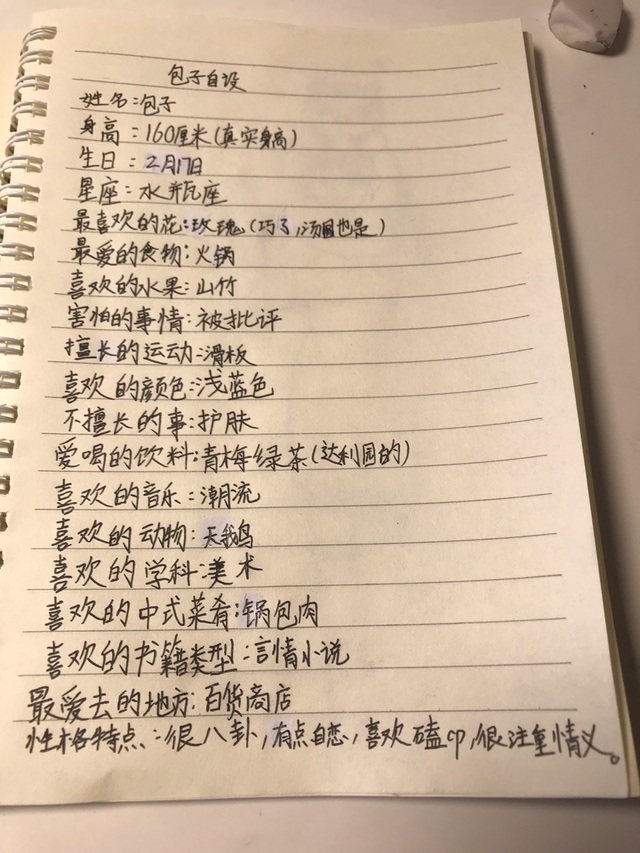 包子自设
姓名:包子
身高:160厘米(真实身高)
生日:2月17日
星座:水瓶座
最喜欢的花:玫瑰(巧了,汤圆也是)
最爱的食物:火锅
喜欢的水果:山竹
害怕的事情:被批评
擅长的运动:滑板
喜欢的颜色:浅蓝色
不擅长的事:护肤
爱喝的饮料:青梅绿茶(达利园的)
喜欢的音乐:潮流
喜欢的动物:天鹅
喜欢的学科:美术
喜欢的中式菜肴:锅包肉
喜欢的书籍类型:言情小说
最爱去的地方:百货商店
性格特点:很八卦,有点自恋,喜欢磕cp,很注重情义。